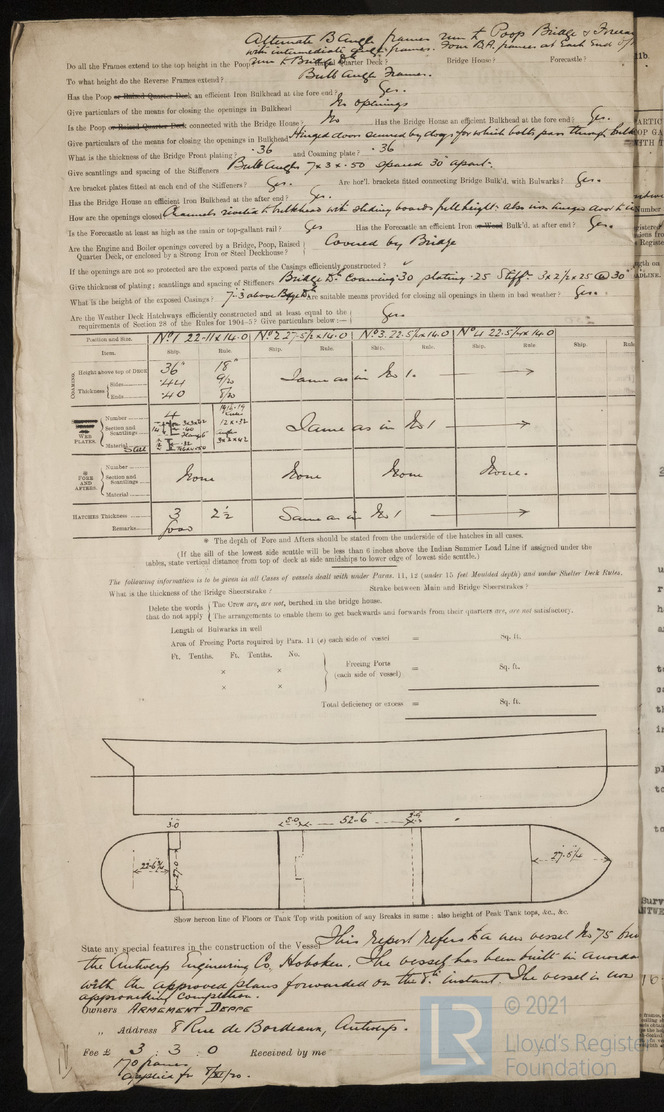 Alternate B Angle frames run to Poop Bridge &
with intermediate angle frames. Four B.A. frames at each end of
Do all the Frames extend to the top height in the Poop? run to Bridge Dk Quarter Deck? Bridge House? Forecastle?
To what height do the Reverse Frames extend? Bulb Angle Frames.
Has the Poop or Raised Quarter Deck an efficient Iron Bulkhead at the fore end? Yes.
Give particulars of the means for closing the openings in Bulkhead No openings
Is the Poop or Raised Quarter Deck connected with the Bridge House? No Has the Bridge House an efficient Bulkhead at the fore end? Yes.
Give particulars of the means for closing the openings in Bulkhead Hinged doors secured by dogs for which bolts pass through
What is the thickness of the Bridge Front plating? .36 and Coaming plate? .36
Give scantlings and spacing of the Stiffeners Bulb Angles 7 x 3 x .50 spaced 30" apart.
Are bracket plates fitted at each end of the Stiffeners? Yes. Are hor'l. brackets fitted connecting Bridge Bulk'd. with Bulwarks? Yes.
Has the Bridge House an efficient Iron Bulkhead at the after end? Yes.
How are the openings closed Channels riveted to bulkhead with sliding boards full height. also iron hinged door to
Is the Forecastle at least as high as the main or top-gallant rail? Yes Has the Forecastle an efficient Iron or Wood Bulk'd. at after end? Yes.
Are the Engine and Boiler openings covered by a Bridge, Poop, Raised
Quarter Deck, or enclosed by a Strong Iron or Steel Deckhouse? Covered by Bridge
If the openings are not so protected are the exposed parts of the Casings efficiently constructed? ✓
Give thickness of plating; scantlings and spacing of Stiffeners Bridge Dk Coaming .30 plating .25 Stiffs 3 x 2 1/2 x .25 @ 30"
What is the height of the exposed Casings? 7'-3 above Bdge Dk Are suitable means provided for closing all openings in them in bad weather? Yes.
Are the Weather Deck Hatchways efficiently constructed and at least equal to the
requirements of Section 28 of the Rules for 1904-5? Give particulars below:— Yes.
Position and Size. No 1 22-11 x 14.0 No 2 27-5 1/2 x 14.0 No 3. 22.5 1/2 x 14.0 No 4 22.5 1/4 x 14.0
Item. Ship. Rule. Ship. Rule. Ship. Rule. Ship. Rule Ship. Rule
COAMING Height above top of Deck 36" 18" Same as in No 1. →
Thickness Sides .44 9/20
Ends .40 8/20
WEB PLATES. Number 4 Same as in No 1 →
Section and Scantlings 12 x .32
Material Steel
* FORE AND AFTERS. Number None None None None.
Section and Scantlings
Material
HATCHES Thickness 3 2 1/2 Same as in No 1 →
Remarks
* The depth of Fore and Afters should be stated from the underside of the hatches in all cases.
(If the sill of the lowest side scuttle will be less than 6 inches above the Indian Summer Load Line if assigned under the
tables, state vertical distance from top of deck at side amidships to lower edge of lowest side scuttle.)
The following information is to be given in all Cases of vessels dealt with under Paras. 11, 12 (under 15 feet Moulded depth) and under Shelter Deck Rules.
What is the thickness of the Bridge Sheerstrake? Strake between Main and Bridge Sheerstrakes?
Delete the words
that do not apply
The Crew are, are not, berthed in the bridge house.
The arrangements to enable them to get backwards and forwards from their quarters are, are not satisfactory.
Length of Bulwarks in well
Area of Freeing Ports required by Para. 11 (e) each side of vessel = Sq. ft.
Ft. Tenths. Ft. Tenths. No.
×   ×
×   ×
Freeing Ports
(each side of vessel) = Sq. ft.
Total deficiency or excess = Sq. ft.
3.0 5.0 52-6
22-6 3/4 27.6 1/4
Show hereon line of Floors or Tank Top with position of any Breaks in same; also height of Peak Tank tops, &c., &c.
State any special features in the construction of the Vessel This report refers to a new vessel No 75
the Antwerp Engineering Co Hoboken. The vessel has been built in
with the approved plans forwarded on the 8th instant. The vessel is now
approaching completion.
Owners ARMEMENT DEPPE
„ Address 8 Rue de Bordeaux, Antwerp.
Fee £ 3 : 3 : 0 Received by me
170 francs
applied for 8/XI/20.
© 2021
Lloyd's Register
Foundation
LR